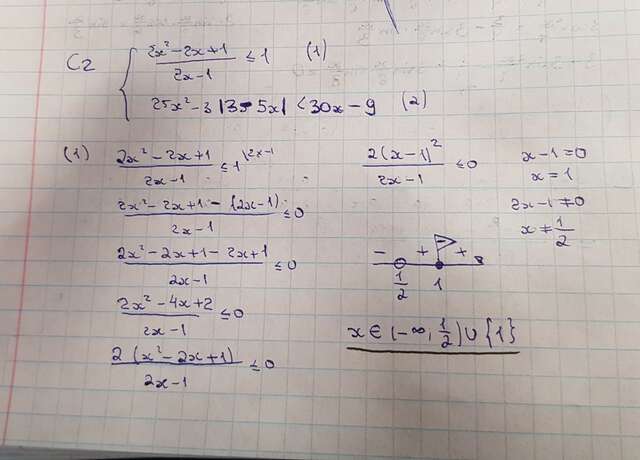 C2 { (2x² - 2x + 1)/(2x - 1) ≤ 1 (1)
25x² - 3|3 - 5x| < 30x - 9 (2)
(1) (2x² - 2x + 1)/(2x - 1) ≤ 1 |2x-1
(2x² - 2x + 1 - (2x - 1))/(2x - 1) ≤ 0
(2x² - 2x + 1 - 2x + 1)/(2x - 1) ≤ 0
(2x² - 4x + 2)/(2x - 1) ≤ 0
2(x² - 2x + 1)/(2x - 1) ≤ 0
2(x - 1)²/(2x - 1) ≤ 0
x - 1 = 0
x = 1
2x - 1 ≠ 0
x ≠ 1/2
- + - +
1/2 1
x ∈ (-∞, 1/2) ∪ {1}